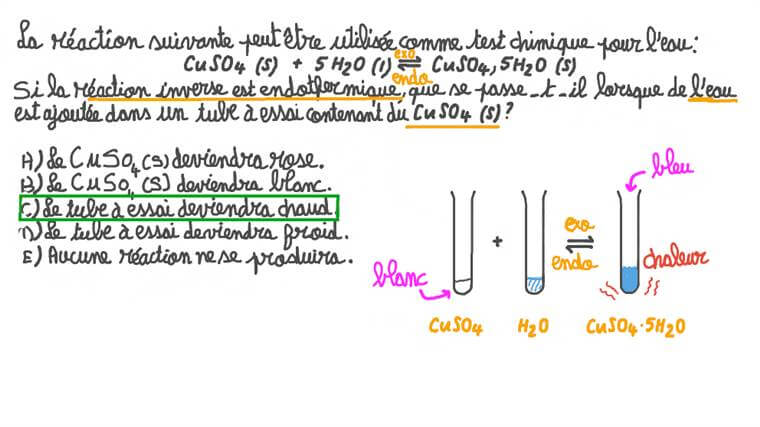 La réaction suivante peut être utilisée comme test chimique pour l'eau:
exo
CuSO₄ (s) + 5H₂O (l) ⇌ CuSO₄,5H₂O (s)
endo
Si la réaction inverse est endothermique, que se passe-t-il lorsque de l'eau
est ajoutée dans un tube à essai contenant du CuSO₄ (s)?
A) Le CuSO₄ (s) deviendra rose.
B) Le CuSO₄ (s) deviendra blanc.
C) Le tube à essai deviendra chaud.
D) Le tube à essai deviendra froid.
E) Aucune réaction ne se produira.
bleu
+
exo
⇌
endo
chaleur
blanc
CuSO₄ H₂O CuSO₄·5H₂O